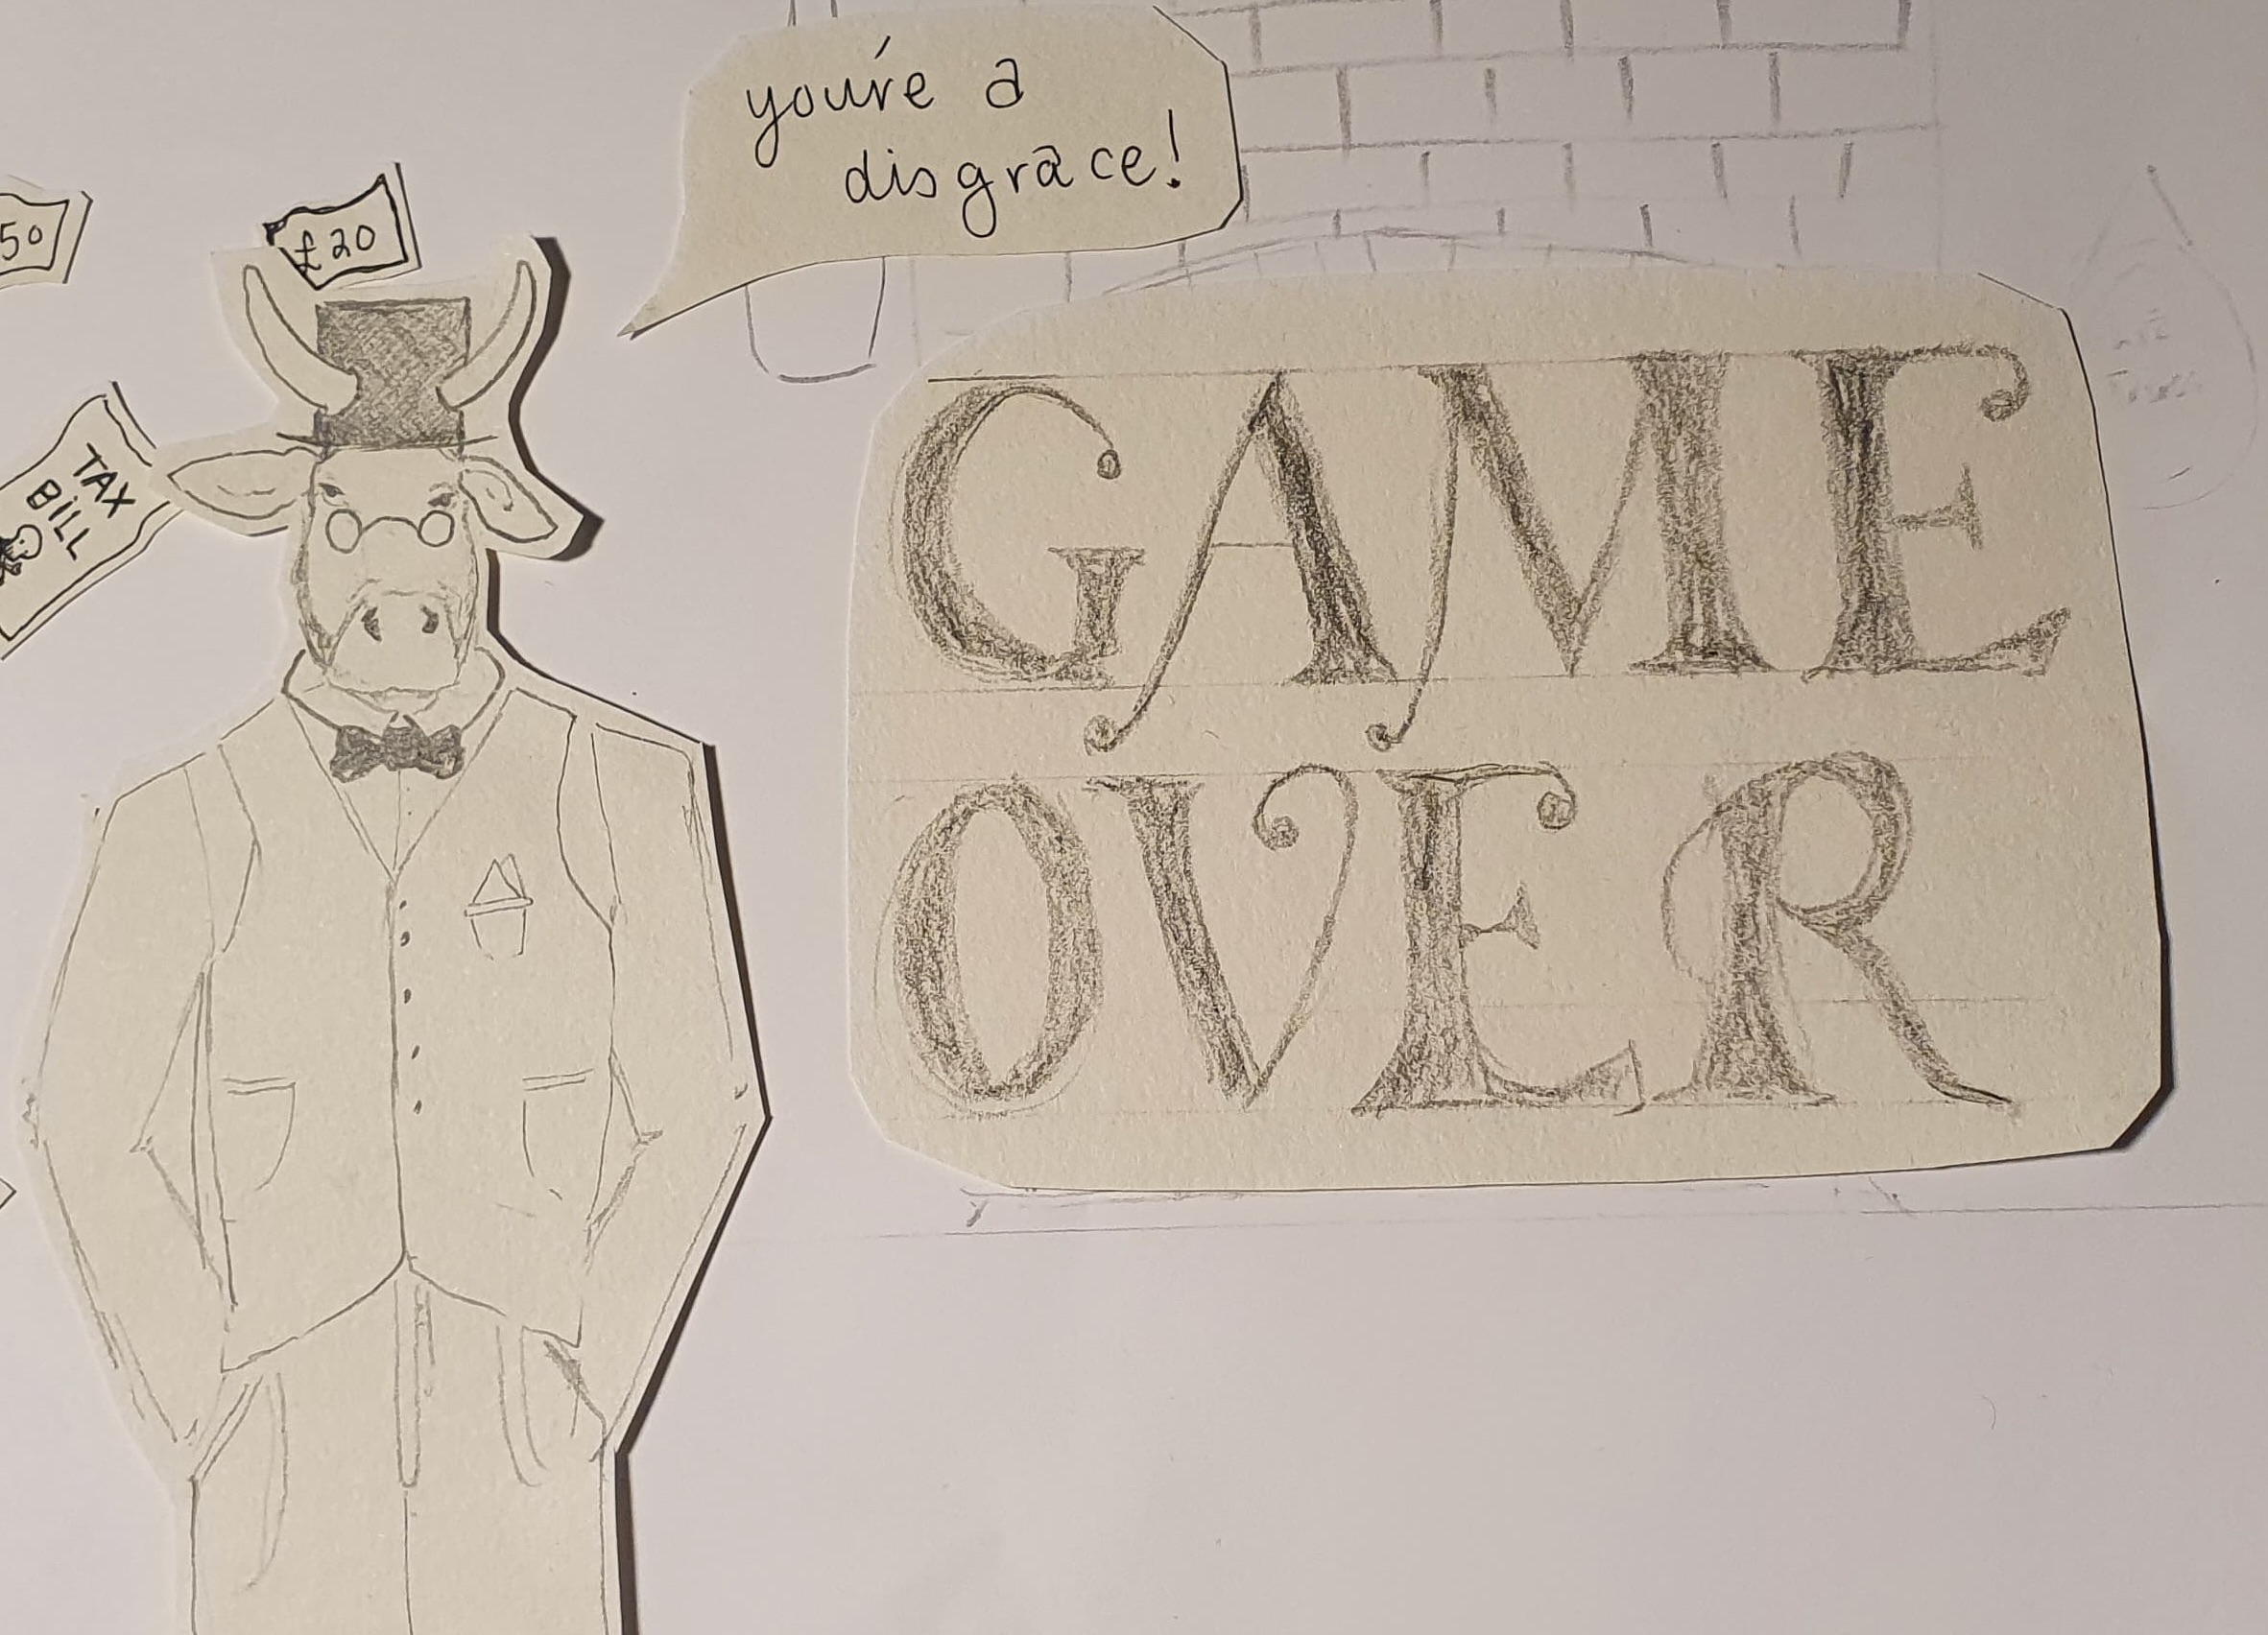 you're a
disgrace!
50
£20
TAX
BILL
GAME
OVER